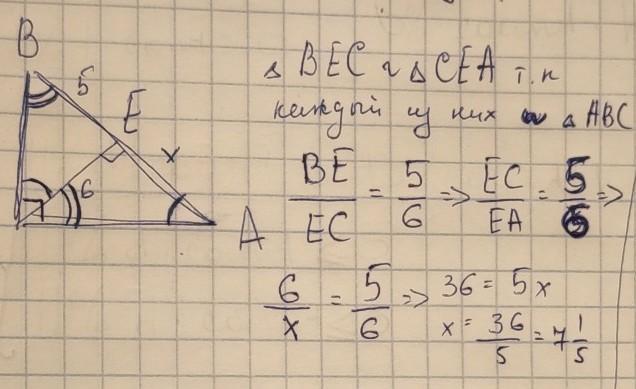 B
5
E
x
6
A
△ BEC ~ △ CEA т.к
каждый из них ~ △ ABC
BE/EC = 5/6 => EC/EA = 5/6 =>
6/x = 5/6 => 36 = 5x
x = 36/5 = 7 1/5